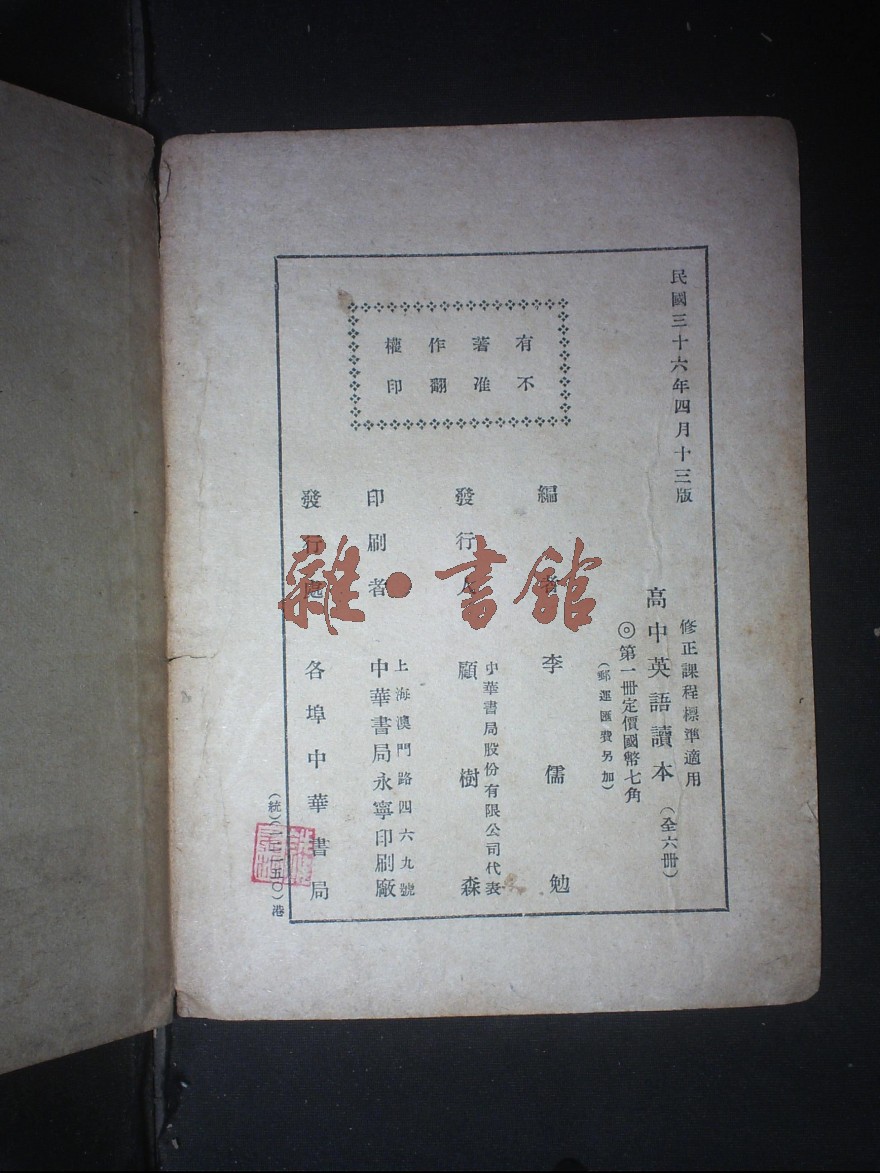 民國三十六年四月十三版
修正課程標準適用
高中英語讀本（全六冊）
◎第一冊定價國幣七角
（郵運匯費另加）
有著作權
不准翻印
編者 李儒勉
中華書局股份有限公司代表
發行人 顧樹森
上海澳門路四六九號
印刷者 中華書局永寧印刷廠
發行處 各埠中華書局
雜·書館